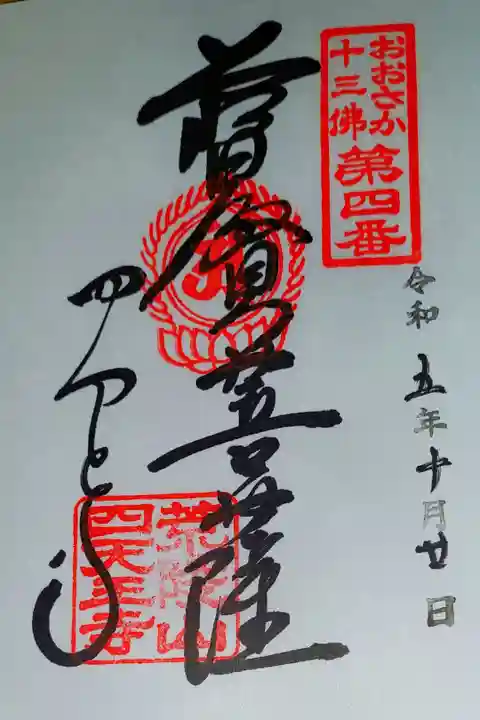 おおさか
十三佛
第四番
令和五年十月廿日
普賢菩薩
四天王寺
荒陵山
四天王寺